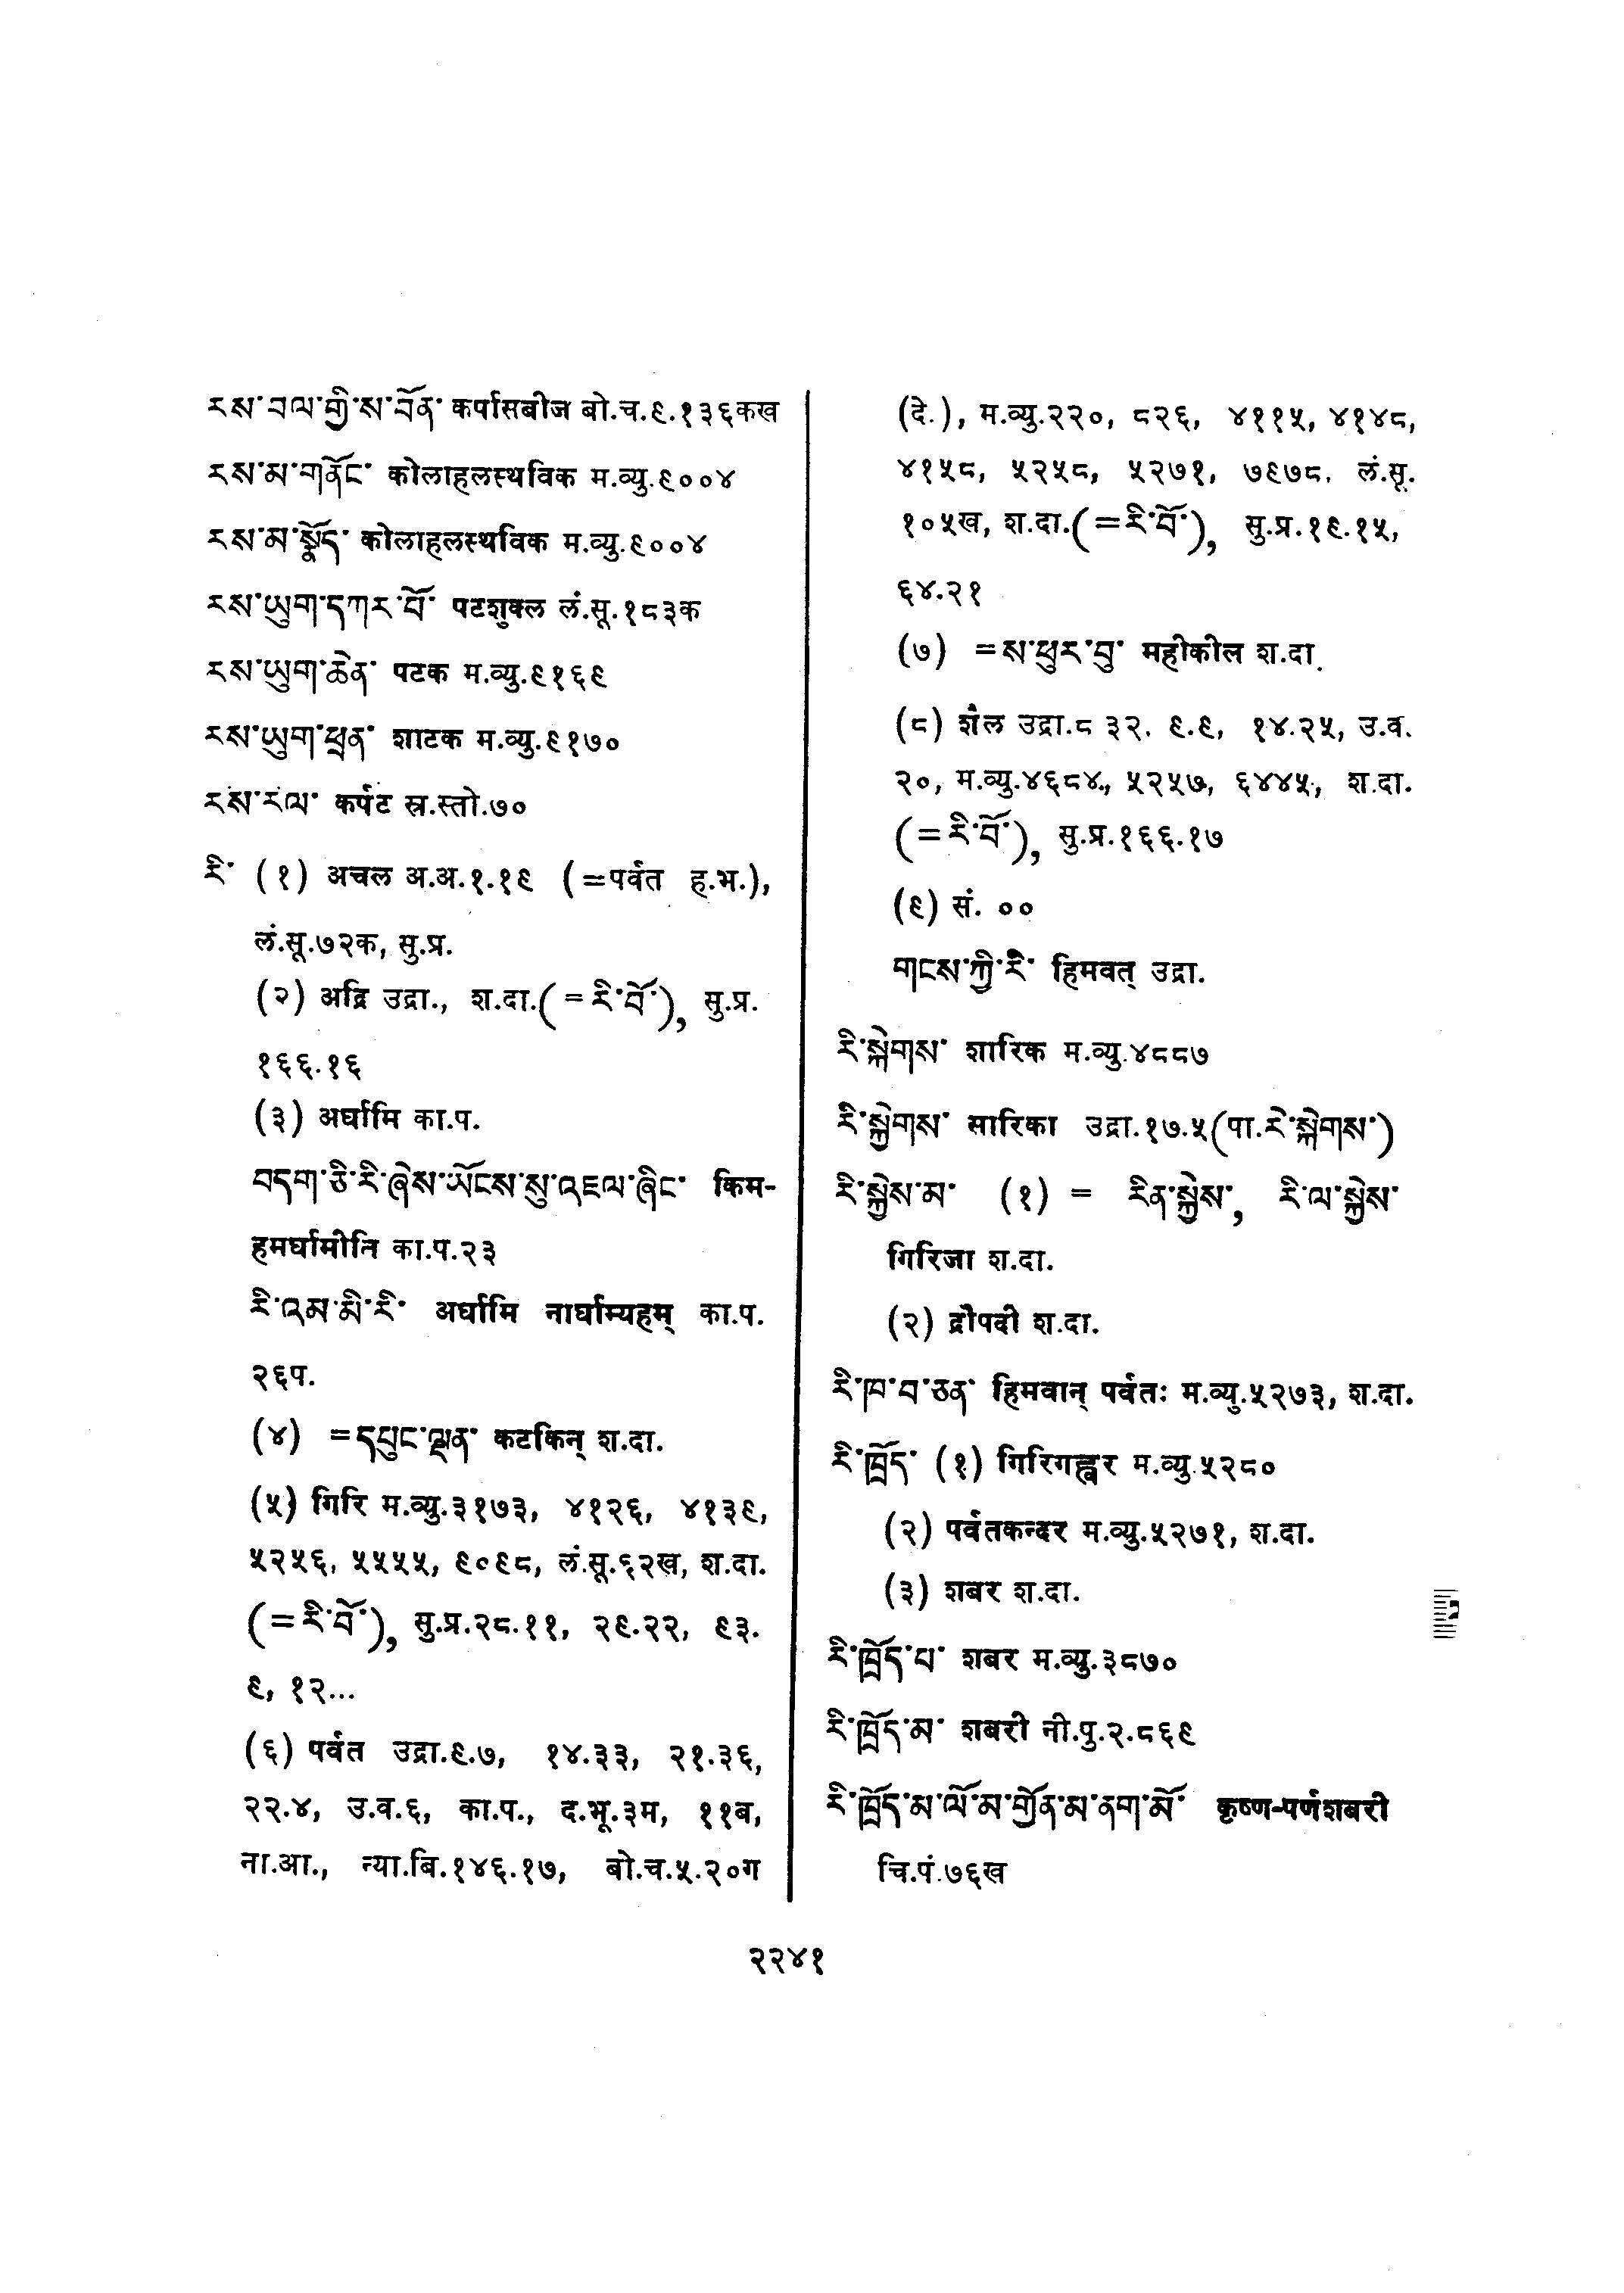 རས་བལ་གྱི་ས་བོན་ कर्पासबीज बो.च.९.१३६कख
རས་མ་གནོང་ कोलाहलस्थविक म.व्यु.९००४
རས་མ་སྣོད་ कोलाहलस्थविक म.व्यु.९००४
རས་ཡུག་དཀར་པོ་ पटशुक्ल लं.सू.१८३क
རས་ཡུག་ཆེན་ पटक म.व्यु.९१६९
རས་ཡུག་ཕྲན་ शाटक म.व्यु.९१७०
རས་རལ་ कर्पट स्र.स्तो.७०
རི་ (१) अचल अ.अ.१.१९ (=पर्वत ह.भ.),
लं.सू.७२क, सु.प्र.
(२) अद्रि उद्रा., श.दा.(=རི་བོ་), सु.प्र.
१६६.१६
(३) अर्घामि का.प.
བདག་ཅི་རི་ཞེས་ཡོངས་སུ་འཇལ་ཞིང་ किम-
हमर्घामीति का.प.२३
རི་འམ་མི་རི་ अर्घामि नार्घाम्यहम् का.प.
२६प.
(४) =དཔུང་ལྡན་ कटकिन् श.दा.
(५) गिरि म.व्यु.३१७३, ४१२६, ४१३९,
५२५६, ५५५५, ९०९८, लं.सू.६२ख, श.दा.
(=རི་བོ་), सु.प्र.२८.११, २९.२२, ९३.
९, १२...
(६) पर्वत उद्रा.९.७, १४.३३, २१.३६,
२२.४, उ.व.६, का.प., द.भू.३म, ११ब,
ना.आ., न्या.बि.१४६.१७, बो.च.५.२०ग
(दे.), म.व्यु.२२०, ८२६, ४११५, ४१४८,
४१५८, ५२५८, ५२७१, ७९७८, लं.सू.
१०५ख, श.दा.(=རི་བོ་), सु.प्र.१९.१५,
६४.२१
(७) =ས་ཕུར་བུ་ महीकील श.दा.
(८) शैल उद्रा.८ ३२, ९.९, १४.२५, उ.व.
२०, म.व्यु.४६८४, ५२५७, ६४४५, श.दा.
(=རི་བོ་), सु.प्र.१६६.१७
(९) सं. ००
གངས་ཀྱི་རི་ हिमवत् उद्रा.
རི་སྐེགས་ शारिक म.व्यु.४८८७
རི་སྐྱེགས་ सारिका उद्रा.१७.५(पा.རེ་སྐེགས་)
རི་སྐྱེས་མ་ (१) = རིན་སྐྱེས་, རི་ལ་སྐྱེས་
गिरिजा श.दा.
(२) द्रौपदी श.दा.
རི་ཁ་བ་ཅན་ हिमवान् पर्वतः म.व्यु.५२७३, श.दा.
རི་ཁྲོད་ (१) गिरिगह्वर म.व्यु.५२८०
(२) पर्वतकन्दर म.व्यु.५२७१, श.दा.
(३) शबर श.दा.
རི་ཁྲོད་པ་ शबर म.व्यु.३८७०
རི་ཁྲོད་མ་ शबरी नी.पु.२.८६९
རི་ཁྲོད་མ་ལོ་མ་གྱོན་མ་ནག་མོ་ कृष्ण-पर्णशबरी
चि.पं.७६ख
२२४१